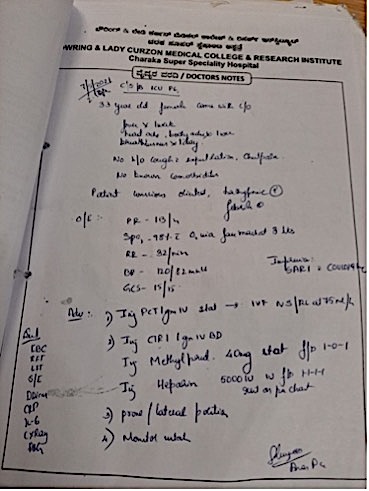 ಬೌರಿಂಗ್ & ಲೇಡಿ ಕರ್ಜನ್ ಮೆಡಿಕಲ್ ಕಾಲೇಜ್ & ರಿಸರ್ಚ್ ಇನ್ಸ್ಟಿಟ್ಯೂಟ್
ಚರಕ ಸೂಪರ್ ಸ್ಪೆಷಾಲಿಟಿ ಆಸ್ಪತ್ರೆ
OWRING & LADY CURZON MEDICAL COLLEGE & RESEARCH INSTITUTE
Charaka Super Speciality Hospital
ವೈದ್ಯರ ವರದಿ / DOCTORS NOTES
C'S/B ICU PG,
33 year old female came with c/o
fever x 1 week
head ache, body ache x 1 week
breathlessness x 1 day
No h/o cough, expectoration, Chestpain
No known comorbidities
Patient conscious oriented,
O/E:
PR - 113/m
SpO2 - 98% c O2 via face mask at 8 lts
RR - 32/min
BP - 120/82 mmHg
GCS - 15/15
Impression:
SARI c COVID
Adv:
1) Inj PCT 1gm IV stat → IVF NS/RL at 75ml/h
2) Inj CTR 1gm IV BD
Inj Methylpred. 40mg stat f/b 1-0-1
Inj Heparin 5000 IU IV f/b 1-1-1
3) prone / lateral position
4) Monitor vitals
CBC
RFT
LFT
S/E
D-Dimer
CRP
IL-6
CXRay
ABG